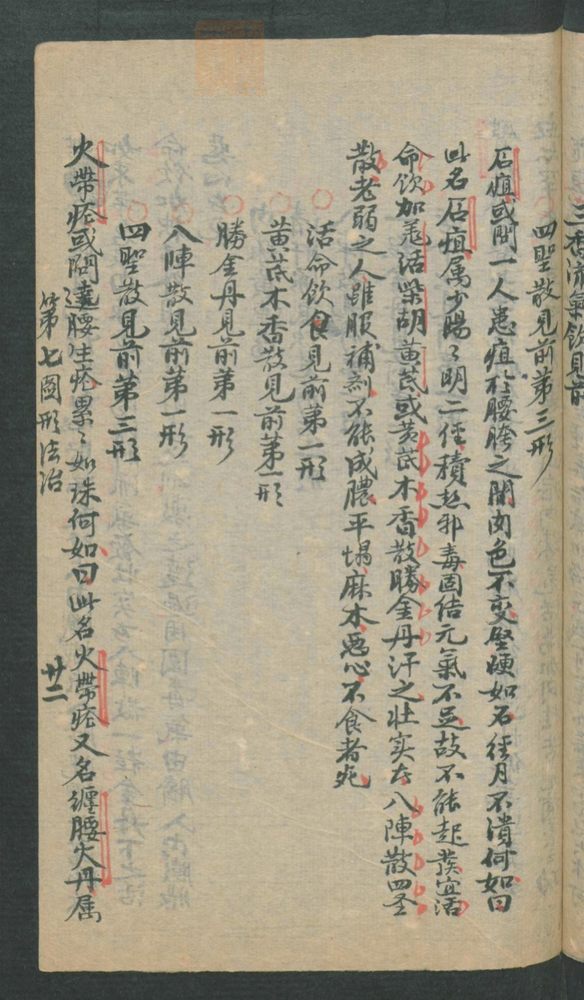 四聖散見前第三形
石疽或問一人患疽在腰胯之間肉色不变坚硬如石経月不潰何如曰
此名石疽属少陽々明二経積热邪毒固结元氣不足故不能起發宜活
命饮加羗活柴胡黄芪或黄芪木香散勝金丹汗之壮实者八陣散四圣
散老弱之人雖服補剂不能成膿平塌麻木惡心不食者死
活命飲見前第一形
黄芪木香散見前第一形
勝金丹見前第一形
八陣散見前第一形
四聖散見前第三形
火帶疮或問遶腰生疮累々如珠何如曰此名火帶疮又名纏腰火丹属
第七圖形法治 廿二